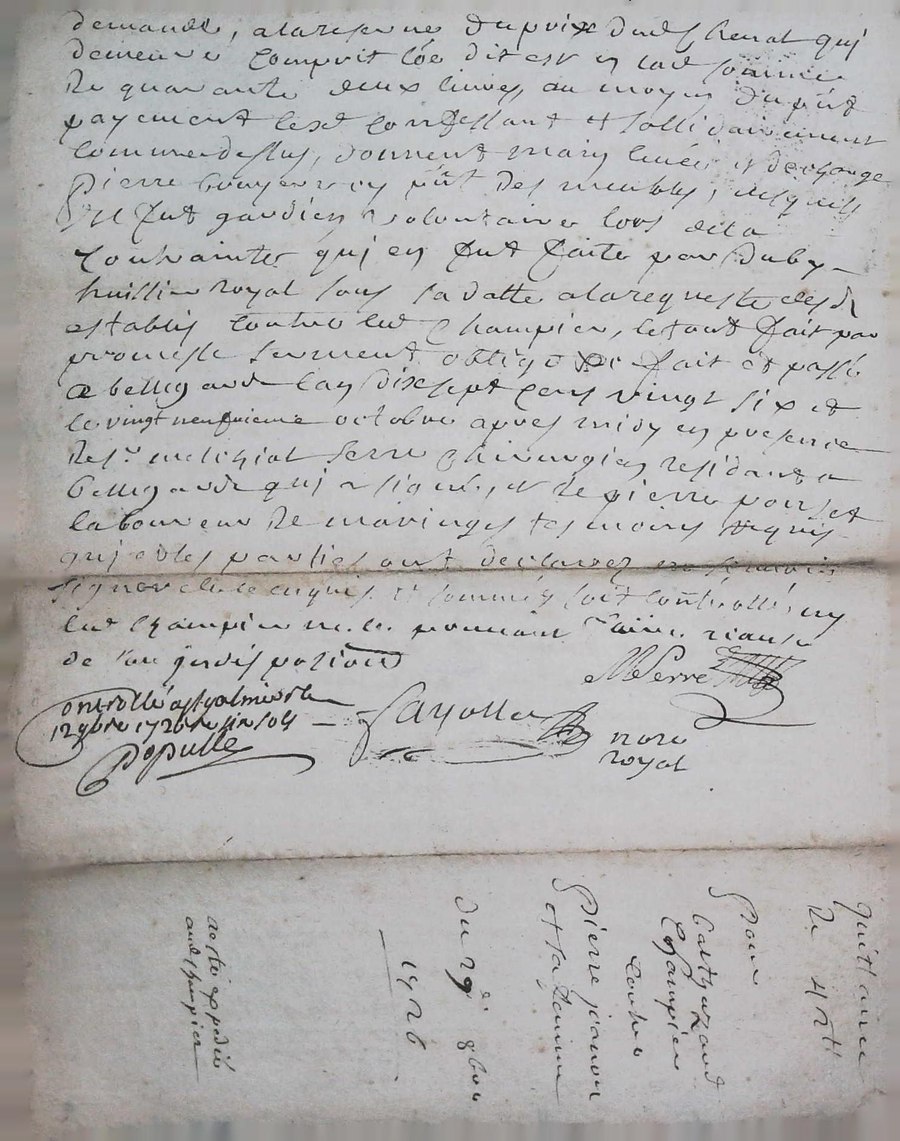 demande, alareserve Du prix Dud Cheval qui
demeure Comprit Côe dit est en lad somme
De quarante deux livres, au moyen Du pñt
payement lesd Confessant et sollidairement
Comme dessus, donnent main levée et descharge
Pierre en pñt Des meubles, desquels
Il fut gardien volontaire lors de la
Contrainte qui en fut faite par Duby
huissier royal sous sa datte alarequeste desd
establis Contre led Champier, le tout fait par
promesse serment obligé fait et passé
a bellegarde lan Dixsept cens vingt six et
le vingt neufvieme octobre apres midy en presence
De sr. melchiol serre chirurgien residant a
bellegarde qui a signé, et De pierre poncet
laboureur De maringes tesmoins requis
qui et les parties ont declarez ne scavoir
signer de ce enquis et sommés soit Controllé,
led Champier
de son
MSerre
Controllé a st galmier le
12 9bre 1726
Populle
nore
royal
quittance
De 42 ₶
Pour
Champier
Contre
Pierre janon
et sa femme
Du 29e 8bre
1726
expedié
aud Champier